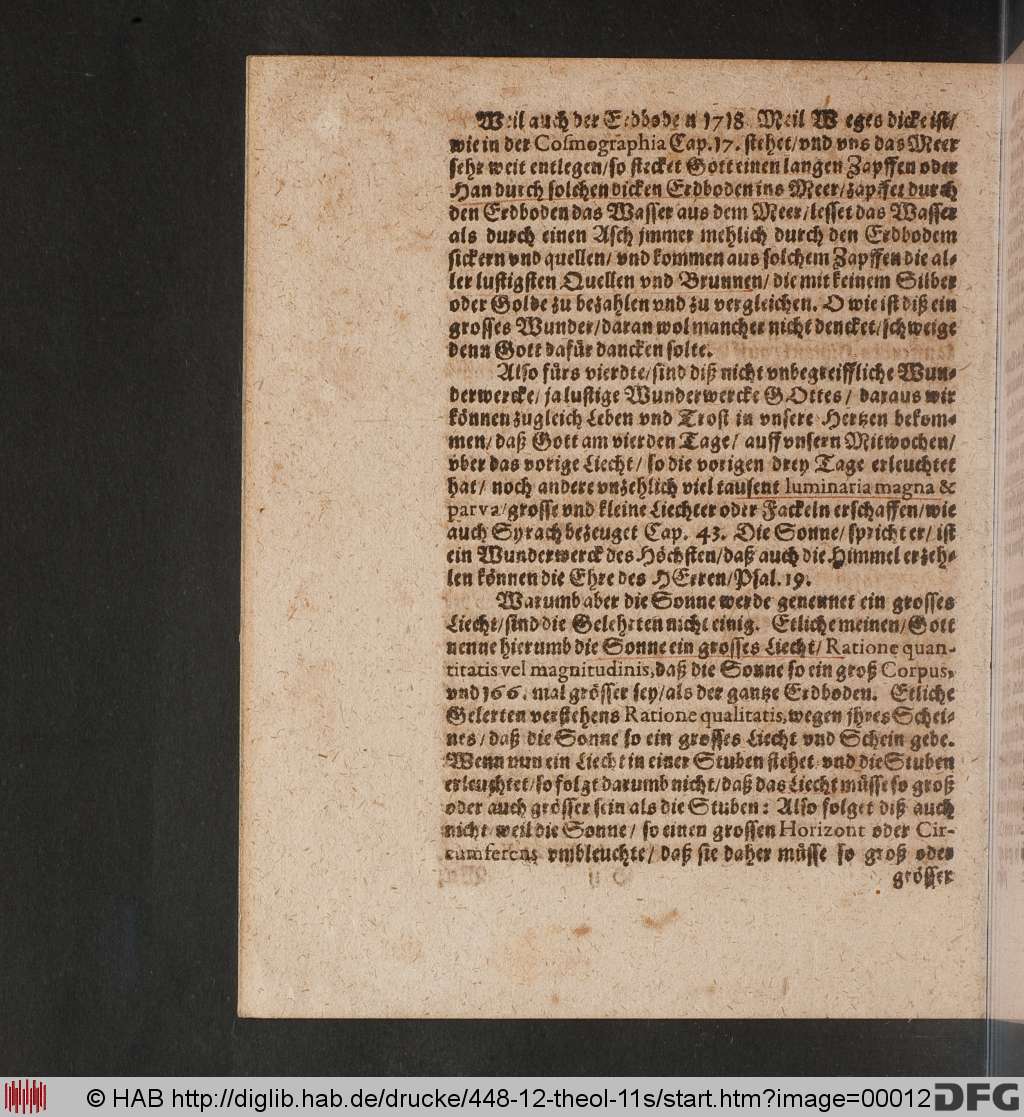 Weil auch der Erdboden 1718 Meil Weges dicke ist/
wie in der Cosmographia Cap. 17. stehet/ vnd vns das Meer
sehr weit entlegen/ so stecket Gott einen langen Zapffen oder
Han durch solchen dicken Erdboden ins Meer/ zapffet durch
den Erdboden das Wasser aus dem Meer/ lesset das Wasser
als durch einen Asch jmmer mehlich durch den Erdbodem
sickern vnd quellen/ vnd kommen aus solchem Zapffen die al-
ler lustigsten Quellen vnd Brunnen/ die mit keinem Silber
oder Golde zu bezahlen vnd zu vergleichen. O wie ist diß ein
grosses Wunder/ daran wol mancher nicht dencket/ schweige
denn Gott dafür dancken solte.
Also fürs vierdte/ sind diß nicht vnbegreiffliche Wun-
derwercke/ ja lustige Wunderwercke GOttes/ daraus wir
können zugleich Leben vnd Trost in vnsere Hertzen bekom-
men/ daß Gott am vierden Tage/ auff vnsern Mitwochen/
vber das vorige Liecht/ so die vorigen drey Tage erleuchtet
hat/ noch andere vnzehlich viel tausent luminaria magna &
parva/ grosse vnd kleine Liechter oder Fackeln erschaffen/ wie
auch Syrach bezeuget Cap. 43. Die Sonne/ spricht er/ ist
ein Wunderwerck des Höchsten/ daß auch die Himmel erzeh-
len können die Ehre des HErren/ Psal. 19.
Warumb aber die Sonne werde genennet ein grosses
Liecht/ sind die Gelehrten nicht einig. Etliche meinen/ Gott
nenne hierumb die Sonne ein grosses Liecht/ Ratione quan-
titatis vel magnitudinis, daß die Sonne so ein groß Corpus,
vnd 166. mal grösser sey/ als der gantze Erdboden. Etliche
Gelerten verstehens Ratione qualitatis, wegen jhres Schei-
nes/ daß die Sonne so ein grosses Liecht vnd Schein gebe.
Wenn nun ein Liecht in einer Stuben stehet vnd die Stuben
erleuchtet/ so folgt darumb nicht/ daß das Liecht müsse so groß
oder auch grösser sein als die Stuben: Also folget diß auch
nicht weil die Sonne/ so einen grossen Horizont oder Cir-
cumferens vmbleuchte/ daß sie daher müsse so groß oder
grösser
© HAB http://diglib.hab.de/drucke/448-12-theol-11s/start.htm?image=00012 DFG